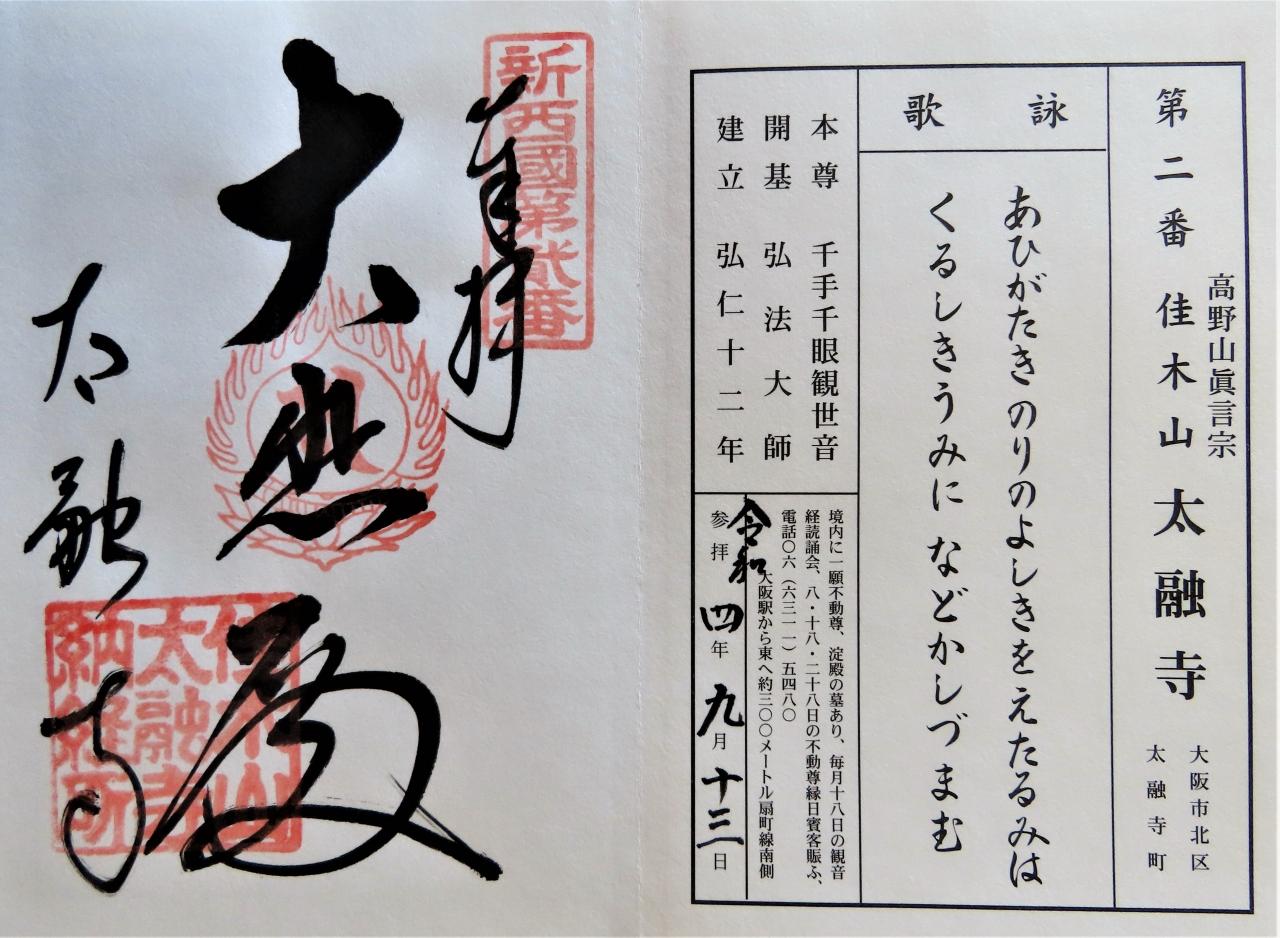 第二番 佳木山 太融寺
高野山眞言宗
大阪市北区
太融寺町
詠歌
あひがたき のりのよしきをえたるみは
くるしきうみに などかしづまむ
本尊 千手千眼観世音
開基 弘法大師
建立 弘仁十二年
境内に一願不動尊、淀殿の墓あり、毎月十八日の観音
経読誦会、八・十八・二十八日の不動尊縁日賓客賑ふ、
電話〇六（六三一一）五四八〇
大阪駅から東へ約三〇〇メートル扇町線南側
参拝 令和四年九月十三日
新西國第貳番
奉拝
大悲殿
太融寺
佳木山
太融寺
納経所